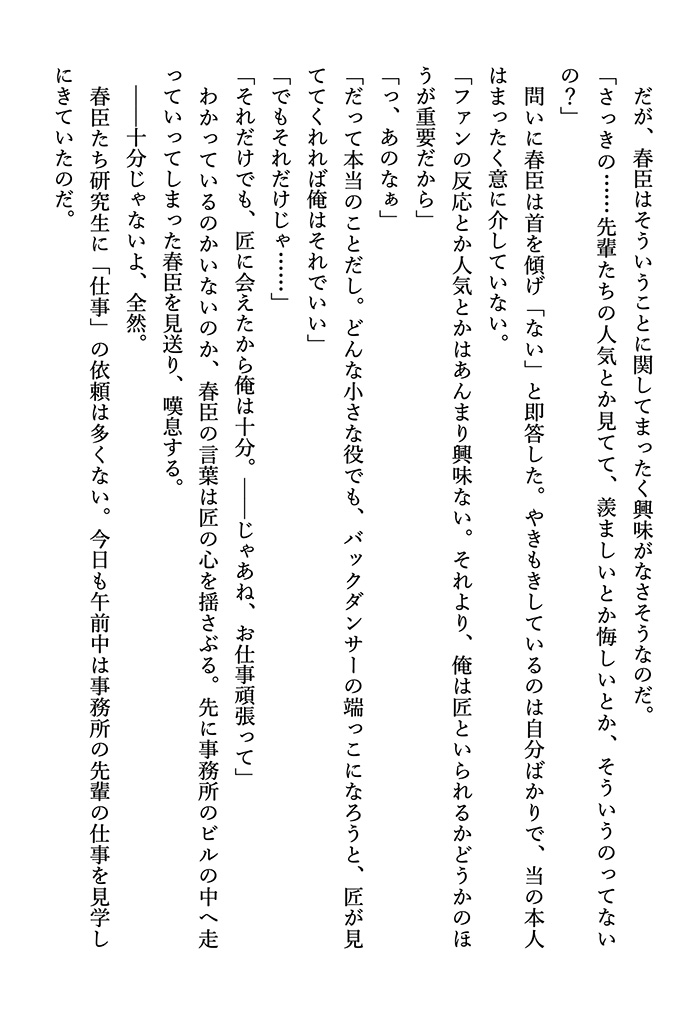 だが、春臣はそういうことに関してまったく興味がなさそうなのだ。
「さっきの……先輩たちの人気とか見てて、羨ましいとか悔しいとか、そういうのってない
の？」
問いに春臣は首を傾げ「ない」と即答した。やきもきしているのは自分ばかりで、当の本人
はまったく意に介していない。
「ファンの反応とか人気とかはあんまり興味ない。それより、俺は匠といられるかどうかのほ
うが重要だから」
「っ、あのなぁ」
「だって本当のことだし。どんな小さな役でも、バックダンサーの端っこになろうと、匠が見
ててくれれば俺はそれでいい」
「でもそれだけじゃ……」
「それだけでも、匠に会えたから俺は十分。――じゃあね、お仕事頑張って」
わかっているのかいないのか、春臣の言葉は匠の心を揺さぶる。先に事務所のビルの中へ走
っていってしまった春臣を見送り、嘆息する。
――十分じゃないよ、全然。
春臣たち研究生に「仕事」の依頼は多くない。今日も午前中は事務所の先輩の仕事を見学し
にきていたのだ。